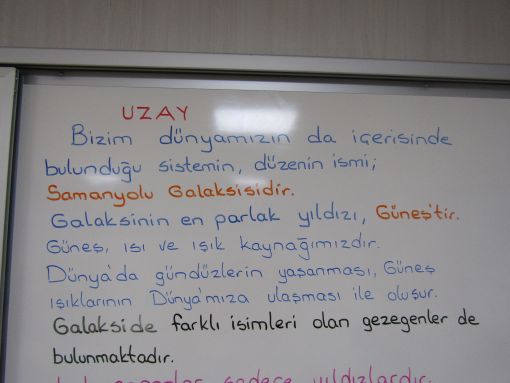 UZAY
Bizim dünyamızın da içerisinde
bulunduğu sistemin, düzenin ismi;
Samanyolu Galaksisidir.
Galaksinin en parlak yıldızı, Güneş'tir.
Güneş, ısı ve ışık kaynağımızdır.
Dünya'da gündüzlerin yaşanması, Güneş
ışıklarının Dünya'mıza ulaşması ile oluşur.
Galakside farklı isimleri olan gezegenler de
bulunmaktadır.
sadece yıldızlardır.